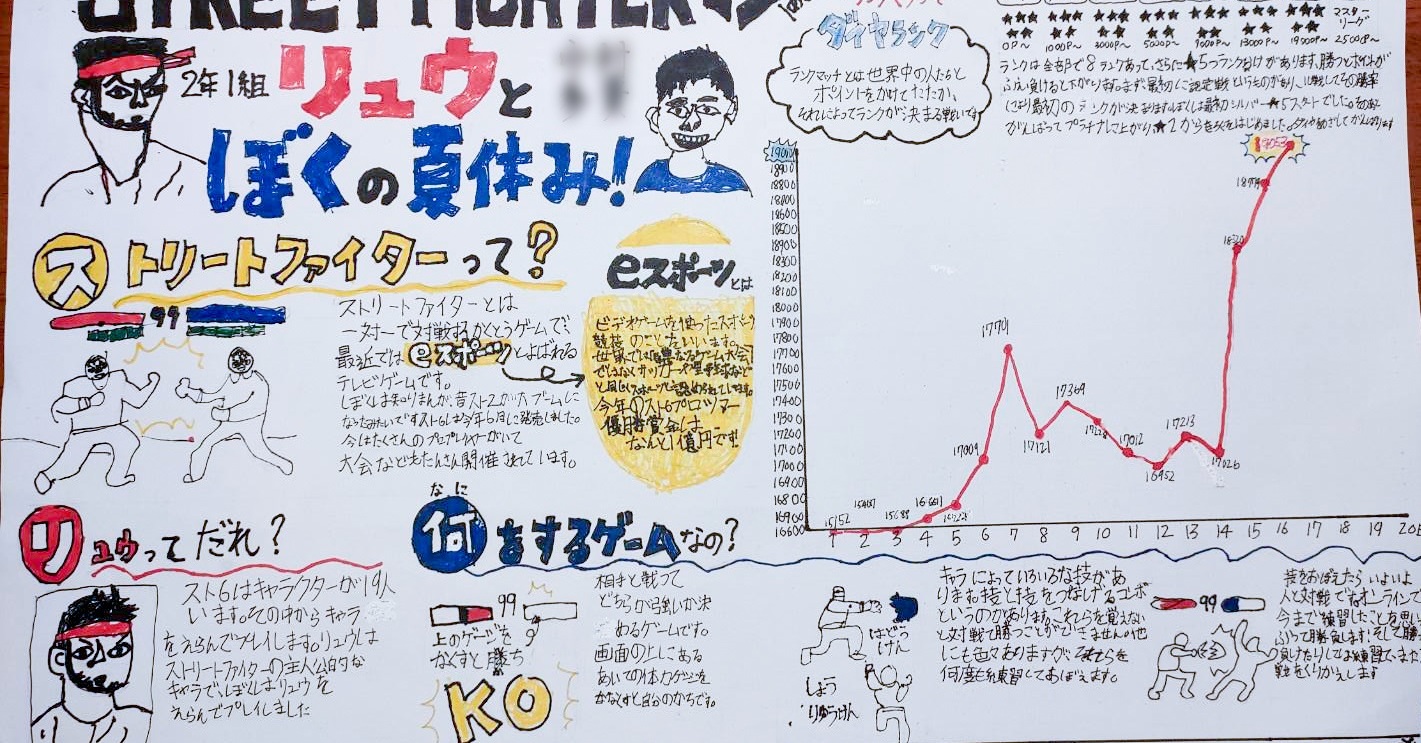 STREET FIGHTER
2年1組 リュウと
ぼくの夏休み!
ストリートファイターって?
99
ストリートファイターとは
一対一で対戦するかくとうゲームで、
最近では eスポーツ とよばれる
テレビゲームです。
ぼくは知りませんが、昔スト2が大ブームに
なったみたいです。スト6は今年6月に発売しました。
今はたくさんのプロプレイヤーがいて
大会などもたくさん開催されています。
eスポーツとは
ビデオゲームを使ったスポーツ
競技のことをいいます。
世界では
ではなくサッカーや野球など
と同じくスポーツと認められています。
今年のスト6プロツアー
優勝賞金は
なんと1億円です!
ダイヤランク
ランクマッチとは世界中の人たちと
ポイントをかけてたたかい、
それによってランクが決まる戦いです
マスター
リーグ
0P〜 1000P〜 3000P〜 5000P〜 9000P〜 13000P〜 19000P〜 25000P〜
ランクは全部で8ランクあって、さらに★5つランク分けがあります。勝つとポイントが
ふえ、負けると下がります。まず、最初に認定戦というものがあり、10戦してその勝率
で最初のランクが決まります。ぼくは最初シルバー★5スタートでした。
がんばってプラチナ
19000
18900
18800
18700
18600
18500
18900
18300
18200
18100
18000
17900
17800
17700
17600
17500
17400
17300
17200
17100
17000
16900
16800
16900
16600
15152
15688
16661
17009
17701
17121
17369
17228
17012
16952
17213
17026
19053
1 2 3 4 5 6 7 8 9 10 11 12 13 14 15 16 17 18 19 20
リュウってだれ?
スト6はキャラクターが19人
います。その中からキャラ
をえらんでプレイします。リュウは
ストリートファイターの主人公的な
キャラで、ぼくはリュウを
えらんでプレイしました
なに
何をするゲームなの?
99
上のゲージを
なくすと勝ち
KO
相手と戦って
どちらが強いか決
めるゲームです。
画面の上にある
あいての体力ゲージを
なくすと自分のかちです。
はどう
けん
しょう
りゅうけん
キャラによっていろいろな技があ
ります。技と技をつなげるコンボ
というのがあります。これらを覚えない
と対戦で勝つことができません。他
にも色々ありますが、それらを
何度も練習しておぼえます。
99
技をおぼえたら いよいよ
人と対戦です。オンラインで
今まで練習したことを思い
って勝負します!そして勝
負けたりしては練習で、また
戦をくりかえします